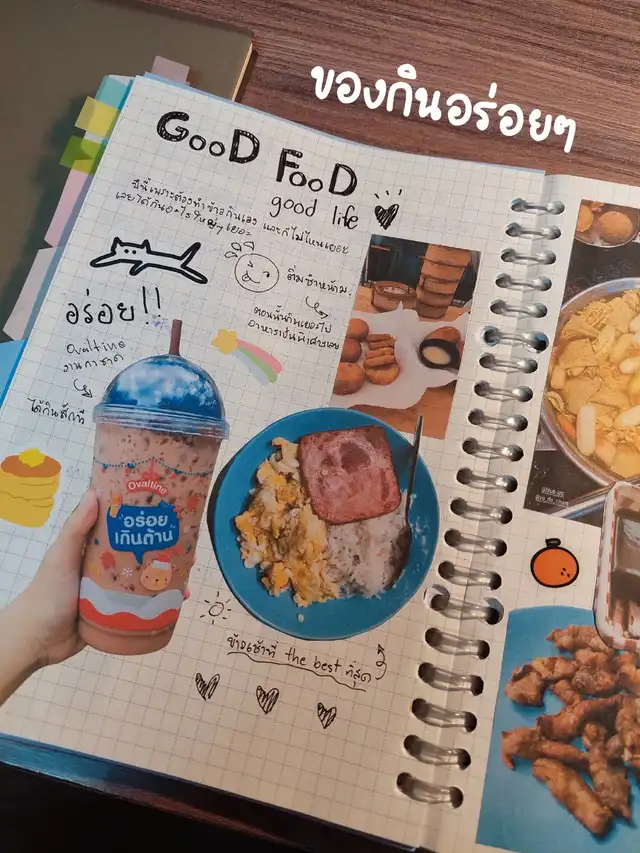 ของกินอร่อยๆ
GooD FooD
good life
ปีนี้เพราะต้องทำข้าวกินเอง และก็ไปไหนเยอะ
เลยได้กินอะไรใหม่ๆ เยอะ
ติ่มซำหน้าม.
อร่อย!!
ตอนนั้นกินเยอะไป
อาหารเป็นพิเศษเลย
Ovaltine
งานกาชาด
ได้กินสักที
Ovaltine
อร่อย
เกินต้าน
ข้าวเช้าที่ the best ที่สุด